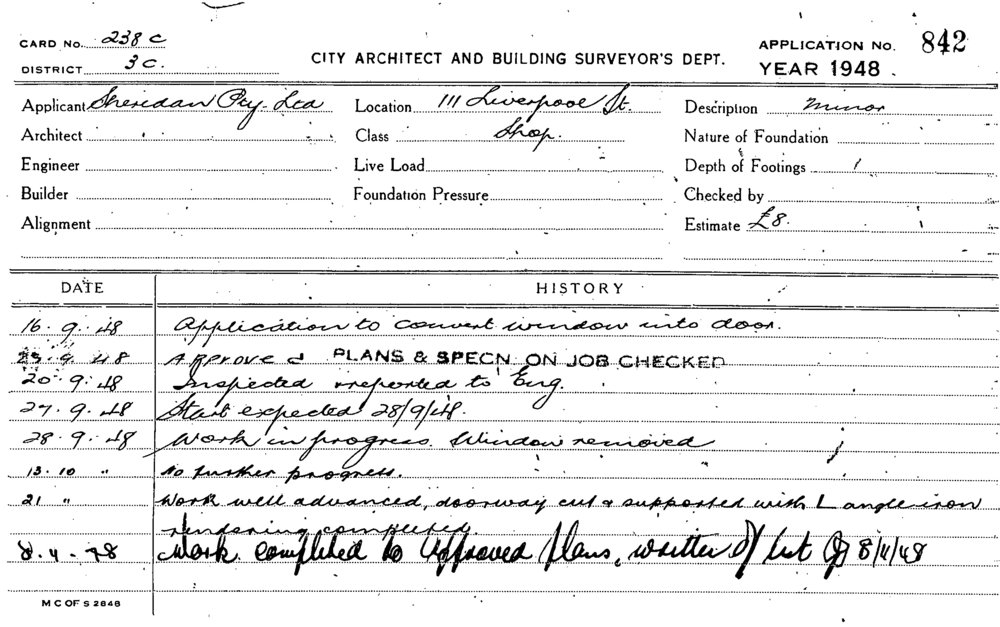 CARD No. 238 C
DISTRICT 3 C.
CITY ARCHITECT AND BUILDING SURVEYOR'S DEPT.
APPLICATION No. 842
YEAR 1948
Applicant Sheridan Pty. Ltd Location 111 Liverpool St. Description Minor
Architect Class Shop. Nature of Foundation
Engineer Live Load Depth of Footings
Builder Foundation Pressure Checked by
Alignment Estimate £8.
DATE HISTORY
16. 9. 48 Application to convert window into door.
23. 9. 48 Approved PLANS & SPECN. ON JOB CHECKED
20. 9. 48 Inspected & reported to Eng.
27. 9. 48 Start expected 28/9/48.
28. 9. 48 Work in progress. Window removed
13. 10 " No further progress.
21 " Work well advanced, doorway cut & supported with L angle iron
rendering completed
8. 11. 48 Work completed to approved plans, written off list 8/11/48
M C OF S 2848